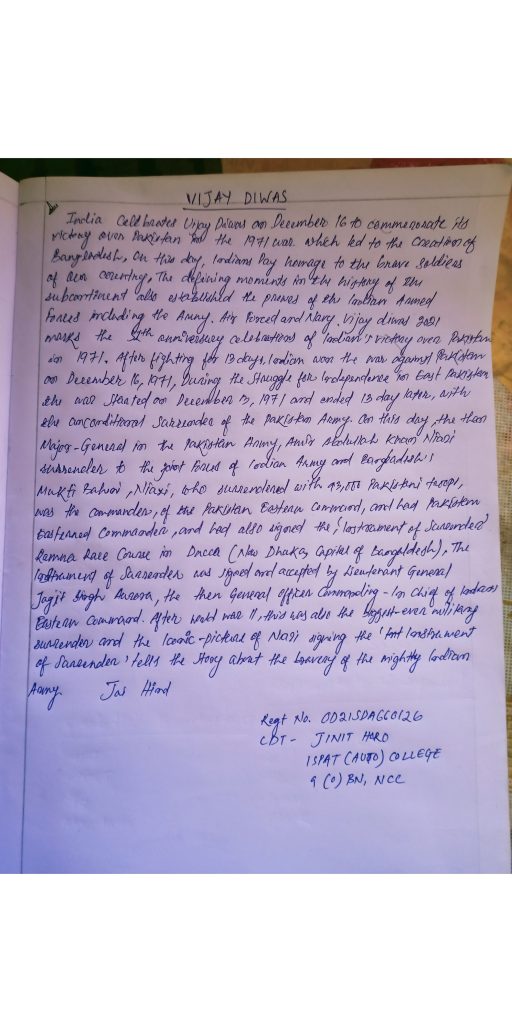 VIJAY DIWAS
India Celebrates Vijay Diwas on December 16 to commemorate its
victory over Pakistan in the 1971 war which led to the Creation of
Bangladesh, On this day, Indians Pay homage to the brave soldiers
of our country, The defining moments in the history of the
subcontinent also established the prowes of the Indian Armed
Forces including the Army, Air Forced and Navy. Vijay diwas 2021
marks the anniversary celebrations of Indian's victory over Pakistan
in 1971. After fighting for 13 days, Indian won the war against Pakistan
on December 16, 1971, During the Struggle for Independence in East Pakistan
the war Started on December 3, 1971 and ended 13 day later, with
the unconditional Surrender of the Pakistan Army. On this day, the then
Major-General in the Pakistan Army, Amir Abdullah Khan Niazi
surrender to the joint Forces of Indian Army and Bangladesh's
Mukti Bahini, Niazi, who surrendered with 93,000 Pakistani troops,
was the commander, of the Pakistan Eastern Command, and had Pakistan
Easterned Commander, and had also signed the, 'Instrument of Surender'
Ramna Race Course in Dacca (Now Dhaka, Capital of Bangladesh), The
Instrument of Surrender was signed and accepted by Lieutenant General
Jagjit Singh Aurora, the then General officer Commanding-In Chief of Indians
Eastern Command. After world war II, this was also the biggest-ever military
surrender and the Iconic-picture of Niazi signing the 'Instrument
of Surrender' tells the story about the bravery of the mightly Indian
Army. Jai Hind
Regt No. OD21SDA660126
CDT - JINIT HORO
ISPAT (AUTO) COLLEGE
9 (O) BN, NCC